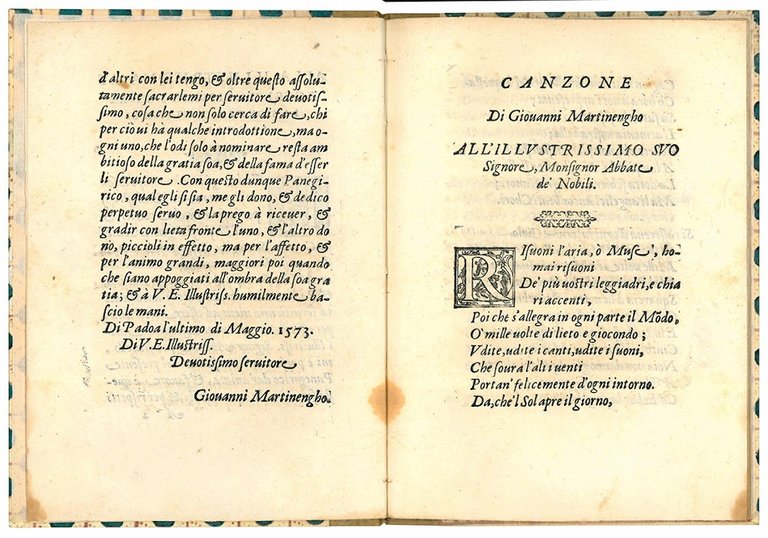 d'altri con lei tengo, & oltre questo assolu-
tamente sacrarlemi per seruitore deuotis-
simo, cosa che non solo cerca di fare, chi
per ciò ui hà qualche introdottione, ma o-
gni uno, che l'odi solo à nominare resta am
bitioso della gratia soa, & della fama d'esser
li seruitore. Con questo dunque Panegi-
rico, qual egli si sia, me gli dono, & dedico
perpetuo seruo, & la prego à riceuer, &
gradir con lieta fronte l'uno, & l'altro do
nò, piccioli in effetto, ma per l'affetto, &
per l'animo grandi, maggiori poi quando
che siano appoggiati all'ombra della soa gra
tia; & à V. E. Illustriss. humilmente ba-
scio le mani.
Di Padoa l'ultimo di Maggio. 1573.
Di V. E. Illustriss.
Deuotissimo seruitore
Giouanni Martinengho.
CANZONE
Di Giouanni Martinengho
ALL'ILLVSTRISSIMO SVO
Signore, Monsignor Abbate
de' Nobili.
RIsuoni l'aria, ò Muse', ho-
mai risuoni
De' più uostri leggiadri, e chia
ri accenti,
Poi che s'allegra in ogni parte il Mōdo,
O' mille uolte di lieto e giocondo;
Vdite, udite i canti, udite i suoni,
Che soura l'ali i uenti
Portan' felicemente d'ogni intorno.
Da, che'l Sol apre il giorno,